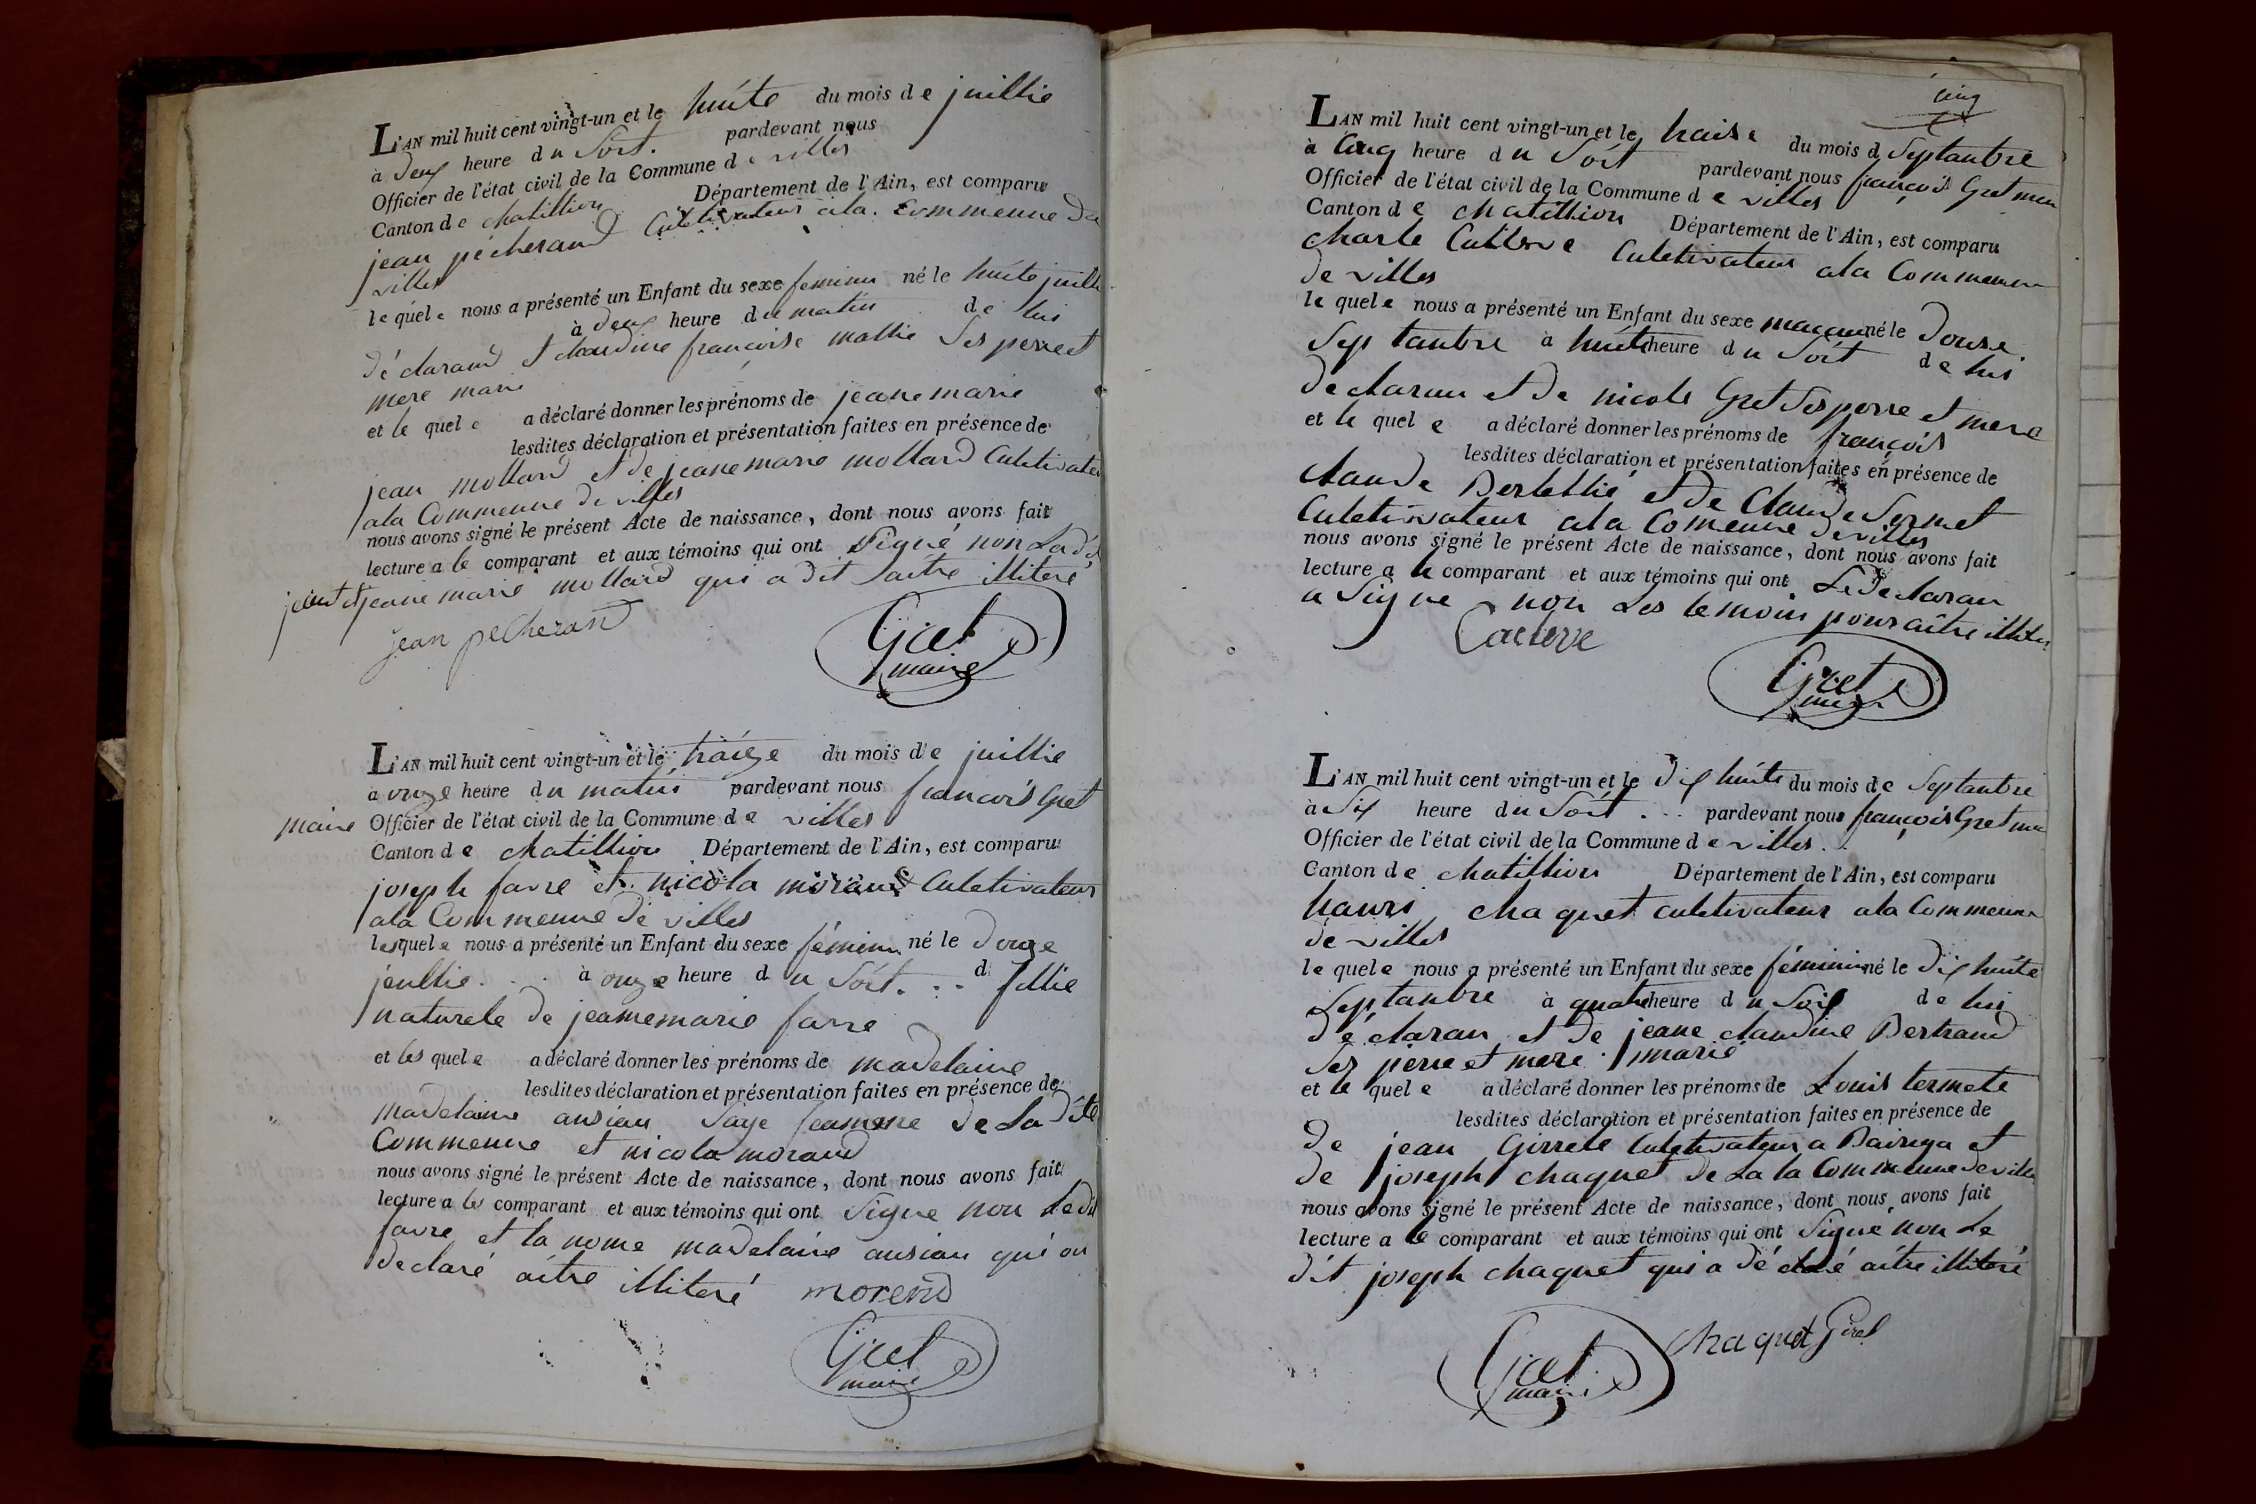 L'AN mil huit cent vingt-un et le huite du mois de juillie
à deux heure du Soit. pardevant nous
Officier de l'état civil de la Commune de villes
Canton de chatillion Département de l'Ain, est comparu
jean pécherand Culetivateur ala. Commenne da
villes
le quele nous a présenté un Enfant du sexe feminin né le huite juillie
à deux heure du matin de lui
déclarand et claudine francoise mathie Ses perre et
mere marié
et le quele a déclaré donner les prénoms de jeane marie
lesdites déclaration et présentation faites en présence de
jean mollard et de jeane marie mollard Culetivateur
ala Commenne de villes
nous avons signé le présent Acte de naissance, dont nous avons fait
lecture a le comparant et aux témoins qui ont Signé non La dé
jeane marie mollard qui a dit aitre illiteré
jean pecherand
Gret
maire
L'AN mil huit cent vingt-un et le traize du mois de juillie
a onze heure du matin pardevant nous francois Gret
maire Officier de l'état civil de la Commune de villes
Canton de chatillion Département de l'Ain, est comparu
joseph favre et nicola morand Culetivateur
ala Commenne de villes
lesquele nous a présenté un Enfant du sexe féminin né le douze
juillie. à onze heure du Soit. d fillie
naturele de jeanemarie favre
et les quele a déclaré donner les prénoms de madelaine
lesdites déclaration et présentation faites en présence de
madelaine ansian Saje feamme de La dite
Commenne et nicola morand
nous avons signé le présent Acte de naissance, dont nous avons fait
lecture a les comparant et aux témoins qui ont Signe non Le dit
favre et la nome madelaine ansian qui on
declaré aitre illiteré morend
Gret
maire
cinq
LAN mil huit cent vingt-un et le traise du mois d Septanbre
à Cinq heure du Soit pardevant nous françois Gret mere
Officier de l'état civil de la Commune de villes
Canton de chatillion Département de l'Ain, est comparu
charle Culetivateur ala Commenne
de villes
le quele nous a présenté un Enfant du sexe né le douse
Septanbre à huite heure du Soit de lui
declaran et de nicole Gret Ses perre et mere
et le quele a déclaré donner les prénoms de françois
lesdites déclaration et présentation faites en présence de
claude et de Claude Sornet
Culetivateur ala Comenne de villes
nous avons signé le présent Acte de naissance, dont nous avons fait
lecture a le comparant et aux témoins qui ont Le declaran
a Signe non Les temoin pour aitre illiteré
Gret
maire
L'AN mil huit cent vingt-un et le dix huite du mois de Septanbre
à Six heure du Soit pardevant nous françois Gret
Officier de l'état civil de la Commune de villes.
Canton de chatillion Département de l'Ain, est comparu
hanri chaquet culetivateur ala Commenne
de villes
le quele nous a présenté un Enfant du sexe féminin né le dix huite
Septanbre à quatre heure du Soit de lui
déclaran et de jeane claudine Bertrand
Ses perre et mere marié
et le quele a déclaré donner les prénoms de Louis termete
lesdites déclaration et présentation faites en présence de
de jean Girrele Culetivateur a et
de joseph chaquet de La la Commenne de villes
nous avons signé le présent Acte de naissance, dont nous avons fait
lecture a le comparant et aux témoins qui ont Signé non Le
dit joseph chaquet qui a déclaré aitre illiteré
chaquet Girel
Gret
maire